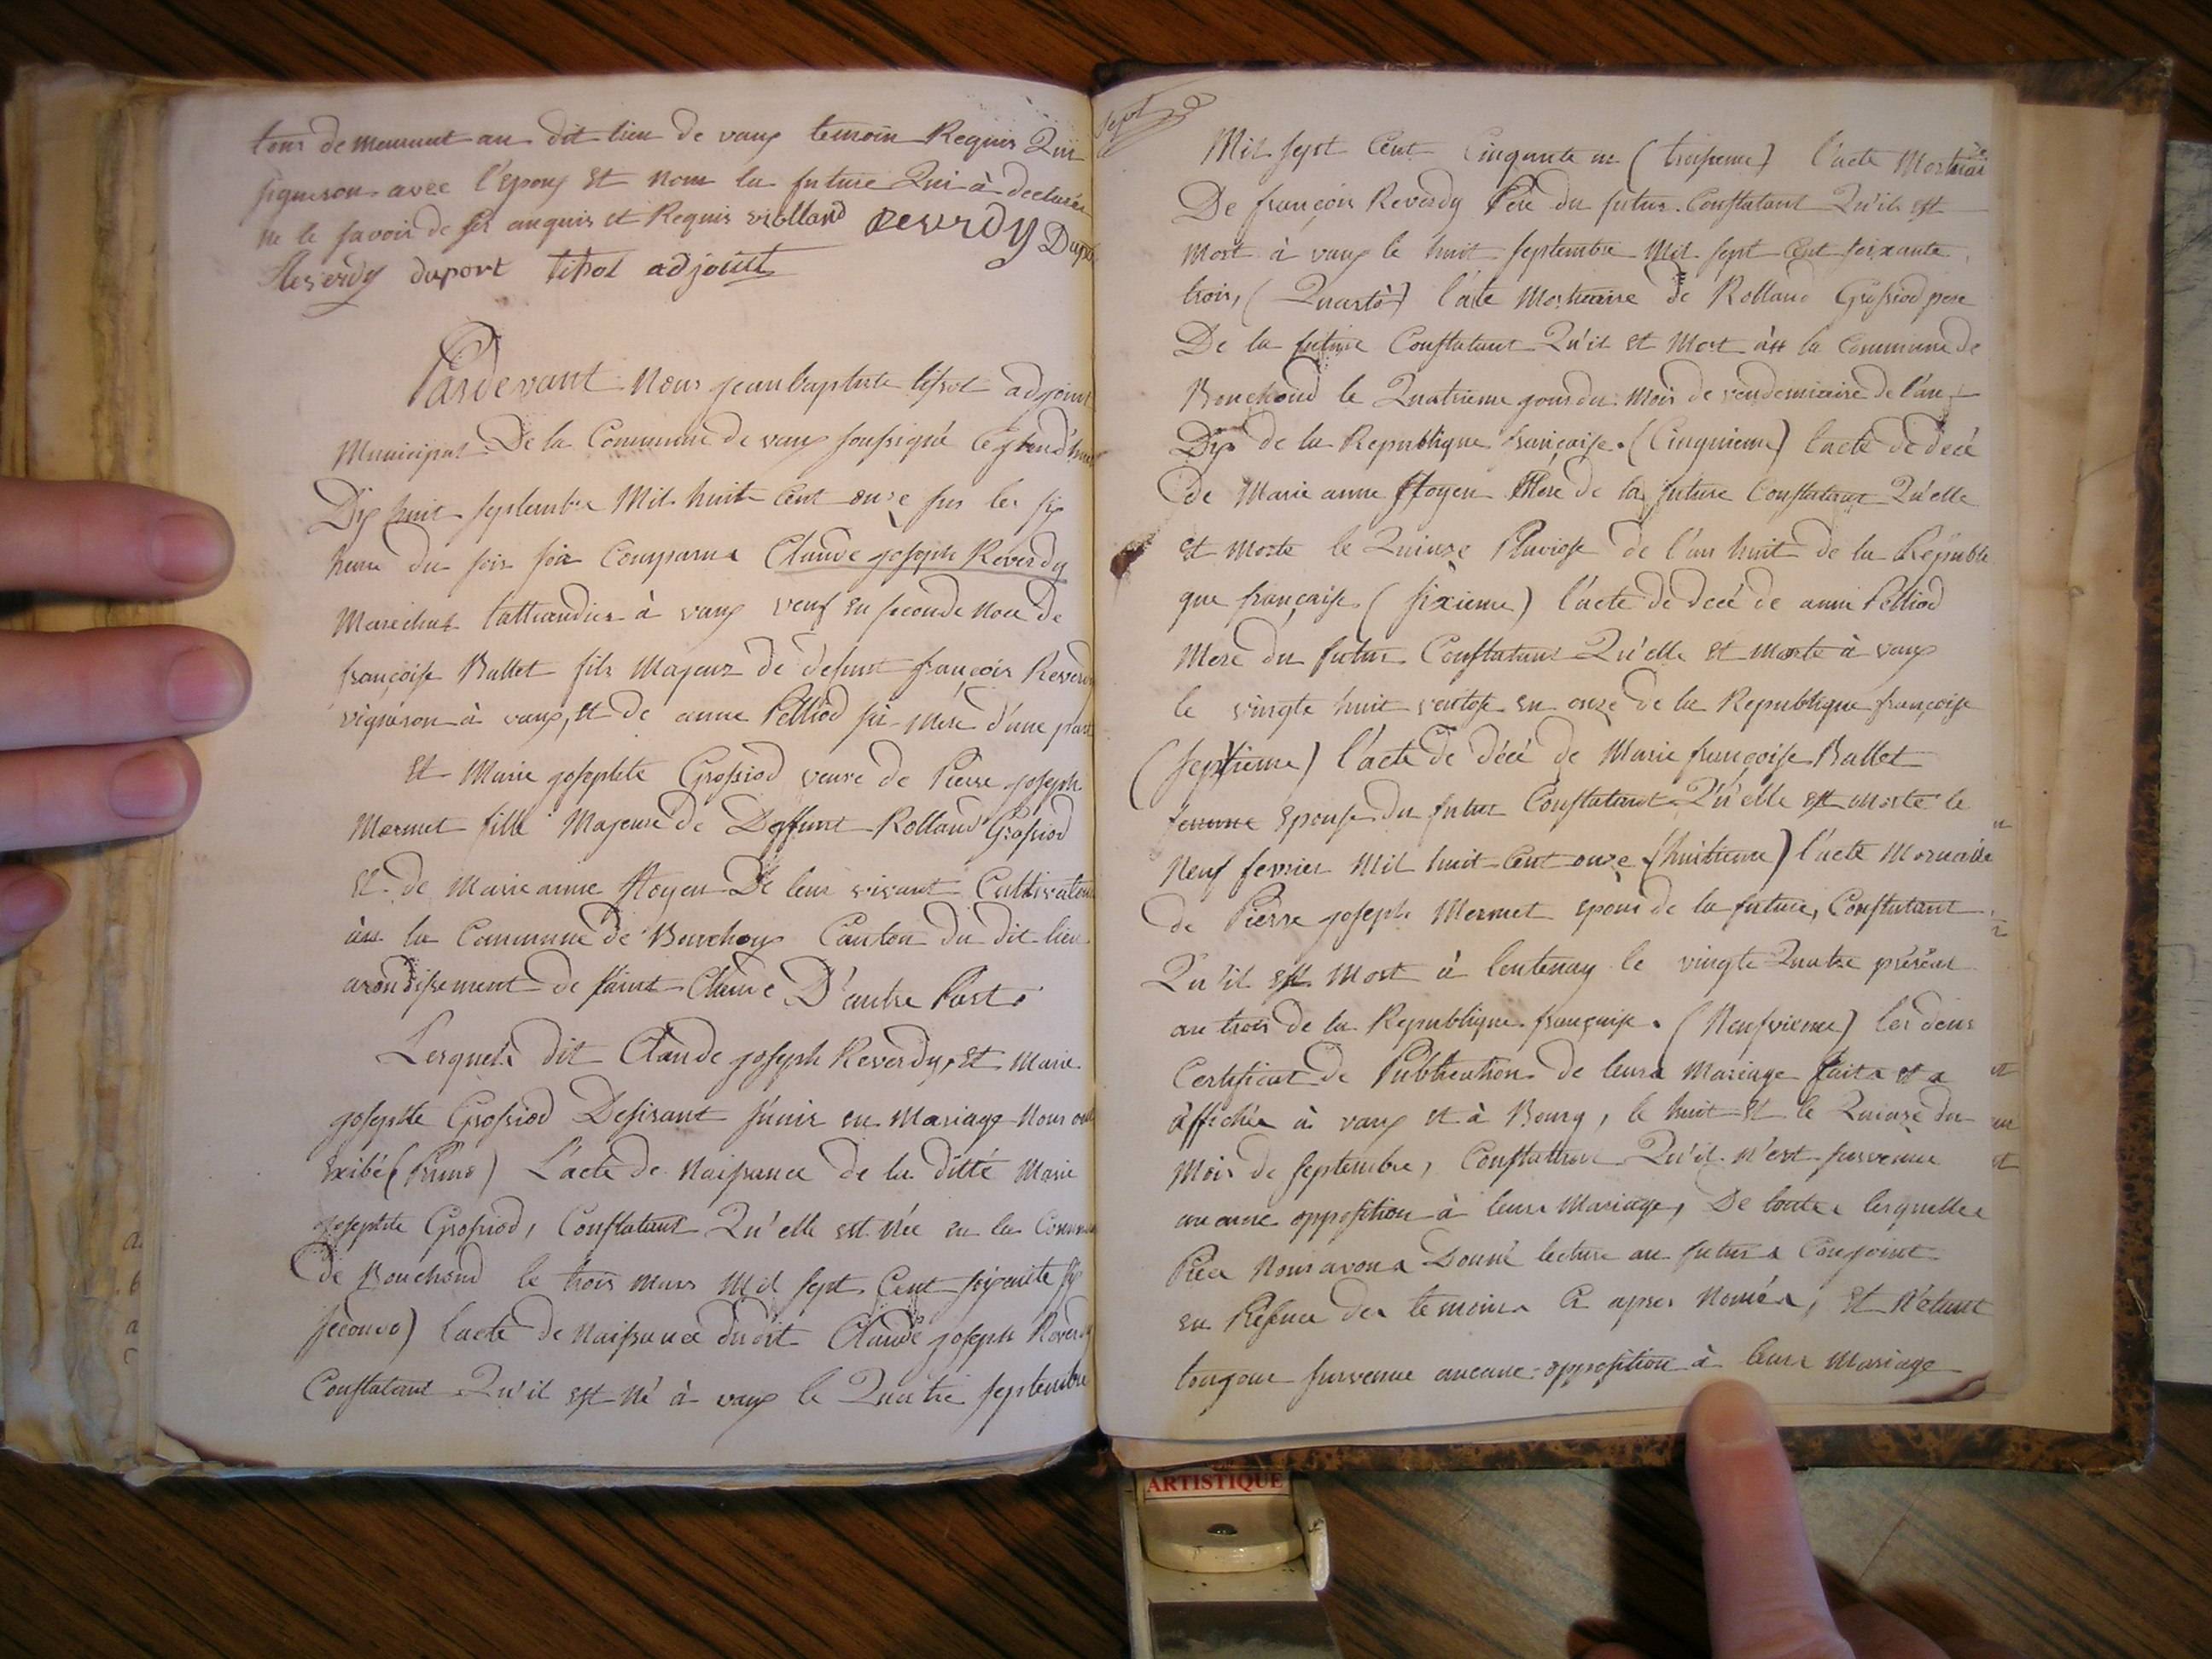 tous demeurant au dit lieu de vaux temoin Requis Qui
signeron avec l'Epoux et Nom la future Qui à declarée
ne le savoir de ses enquis et Requis violland Reverdy Dupo
Reverdy duport tissot adjoint
Pardevant Nous jean baptiste tissot adjoint
Municipal De la Commune de vaux soussigné Cejourd'hui
Dix huit septembre Mil huit Cent onze sur les six
heure du soir Comparu Claude joseph Reverdy
Marechal tattiandier à vaux veuf en seconde Noce de
françoise Ballet fils Majeur de defunt françois Reverdy
vigneron à vaux, et de anne Pelliod sa Mere d'une part
Et Marie josephte Grossiod veuve de Pierre joseph
Mermet fille Majeure de Deffunt Rolland Grossiod
et de Marie anne De leur vivant Cultivateur
la Commune de Bouchoux Canton du dit lieu
arondissement de saint Claude D'autre Part.
Lesquels dit Claude joseph Reverdy, et Marie
josephte Grossiod Desirant s'unir en Mariage Nous ont
Exibé (Primo) L'acte de Naissance de la ditte Marie
josephte Grossiod, Constatant Qu'elle est Née en la Commune
De Bouchoud le trois Mars Mil sept Cent soixante six
secondo) l'acte de Naissance du dit Claude joseph Reverdy
Constatant Qu'il est Né à vaux le Quatre septembre
Mil sept Cent Cinquante un (troisieme) l'acte Mortuai
De françois Reverdy Pere du futur Constatant Qu'il est
Mort à vaux le huit septembre Mil sept Cent soixante
trois, (Quartò) l'acte Mortuaire de Rolland Grossiod pere
De la future Constatant Qu'il est Mort la Commune de
Bouchoud le Quatrieme jour du Mois de vendemiaire de l'an
Dix de la Republique française. (Cinquieme) l'acte de décé
de Marie anne Mere de la future Constatant Qu'elle
est Morte le Quinze Pluviose de l'an huit de la Republi
que française (sixieme) l'acte de decé de anne Pelliod
Mere du futur Constatant Qu'elle est Morte à vaux
le vingte huit ventose en onze de la Republique françoise
(septieme) l'acte de décé de Marie françoise Ballet
femme Epouse du futur Constatant Qu'elle est Morte le
Neuf fevrier Mil huit Cent onze (huitieme) l'acte
de Pierre joseph Mermet epous de la future, Constatant
Qu'il est Mort à lentenay le vingte Quatre préréal
an trois de la Republique françaisse. (Neufvieme) les deux
Certificat de Publication de leurs Mariage faits et
affichés à vaux et à Bourg, le huit et le Quinze du
Mois de septembre, Constattant Qu'il n'est survenue
aucune opposition à leurs Mariage, De toutes lesquelles
Piece Nous avons Donné lecture au futurs Conjoint
en Présence des temoins Ci apres Només, et N'étant
toujour survenue aucune opposition à leurs Mariage
ARTISTIQUE